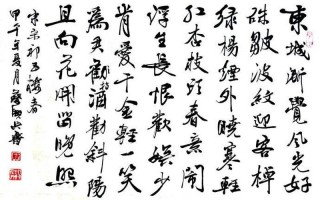 東城漸覺風光好
縠皺波紋迎客棹
綠楊煙外曉寒輕
紅杏枝頭春意鬧
浮生長恨歡娛少
肯愛千金輕一笑
為君持酒勸斜陽
且向花間留晚照
宋宋祁玉樓春
甲午年夏月